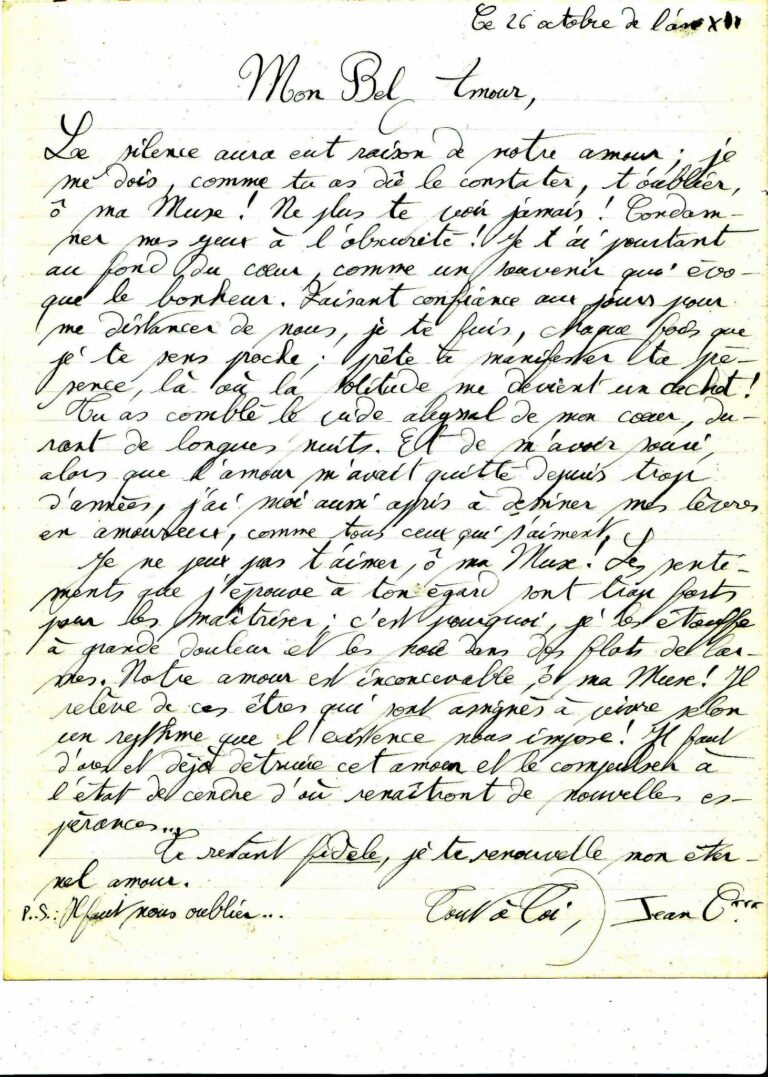 Ce 26 octobre de l'an XII
Mon Bel Amour,
Le silence aura eut raison de notre amour ; je
me dois, comme tu as dû le constater, t'oublier,
ô ma Muse ! Ne plus te voir jamais ! Condam-
ner mes yeux à l'obscurité ! Je t'ai pourtant
au fond du cœur, comme un souvenir qui évo-
que le bonheur. Faisant confiance aux jours pour
me distancer de nous, je te fuis, chaque fois que
je te sens proche ; prête à manifester ta pé-
sence, là où la solitude me devient un cachot !
Tu as comblé le vide de mon cœur, du-
rant de longues nuits. Et de m'avoir souri,
alors que l'amour m'avait quitté depuis trop
d'années, j'ai moi aussi appris à dessiner mes lèvres
en amoureux, comme tous ceux qui s'aiment.
Je ne peux pas t'aimer, ô ma Muse ! Les senti-
ments que j'éprouve à ton égard sont trop forts
pour les maîtriser ; c'est pourquoi, je les étouffe
à grande douleur et les noie dans des flots de lar-
mes. Notre amour est inconcevable, ô ma Muse ! Il
relève de ces êtres qui sont assignés à vivre selon
un rythme que l'existence nous impose ! Il faut
d'ores et déjà détruire cet amour et le compulser à
l'état de cendre d'où renaîtront de nouvelles es-
pérances...
Te restant fidèle, je te renouvelle mon éter-
nel amour.
P.S.: Il faut nous oublier... Tout à Toi, Jean C***